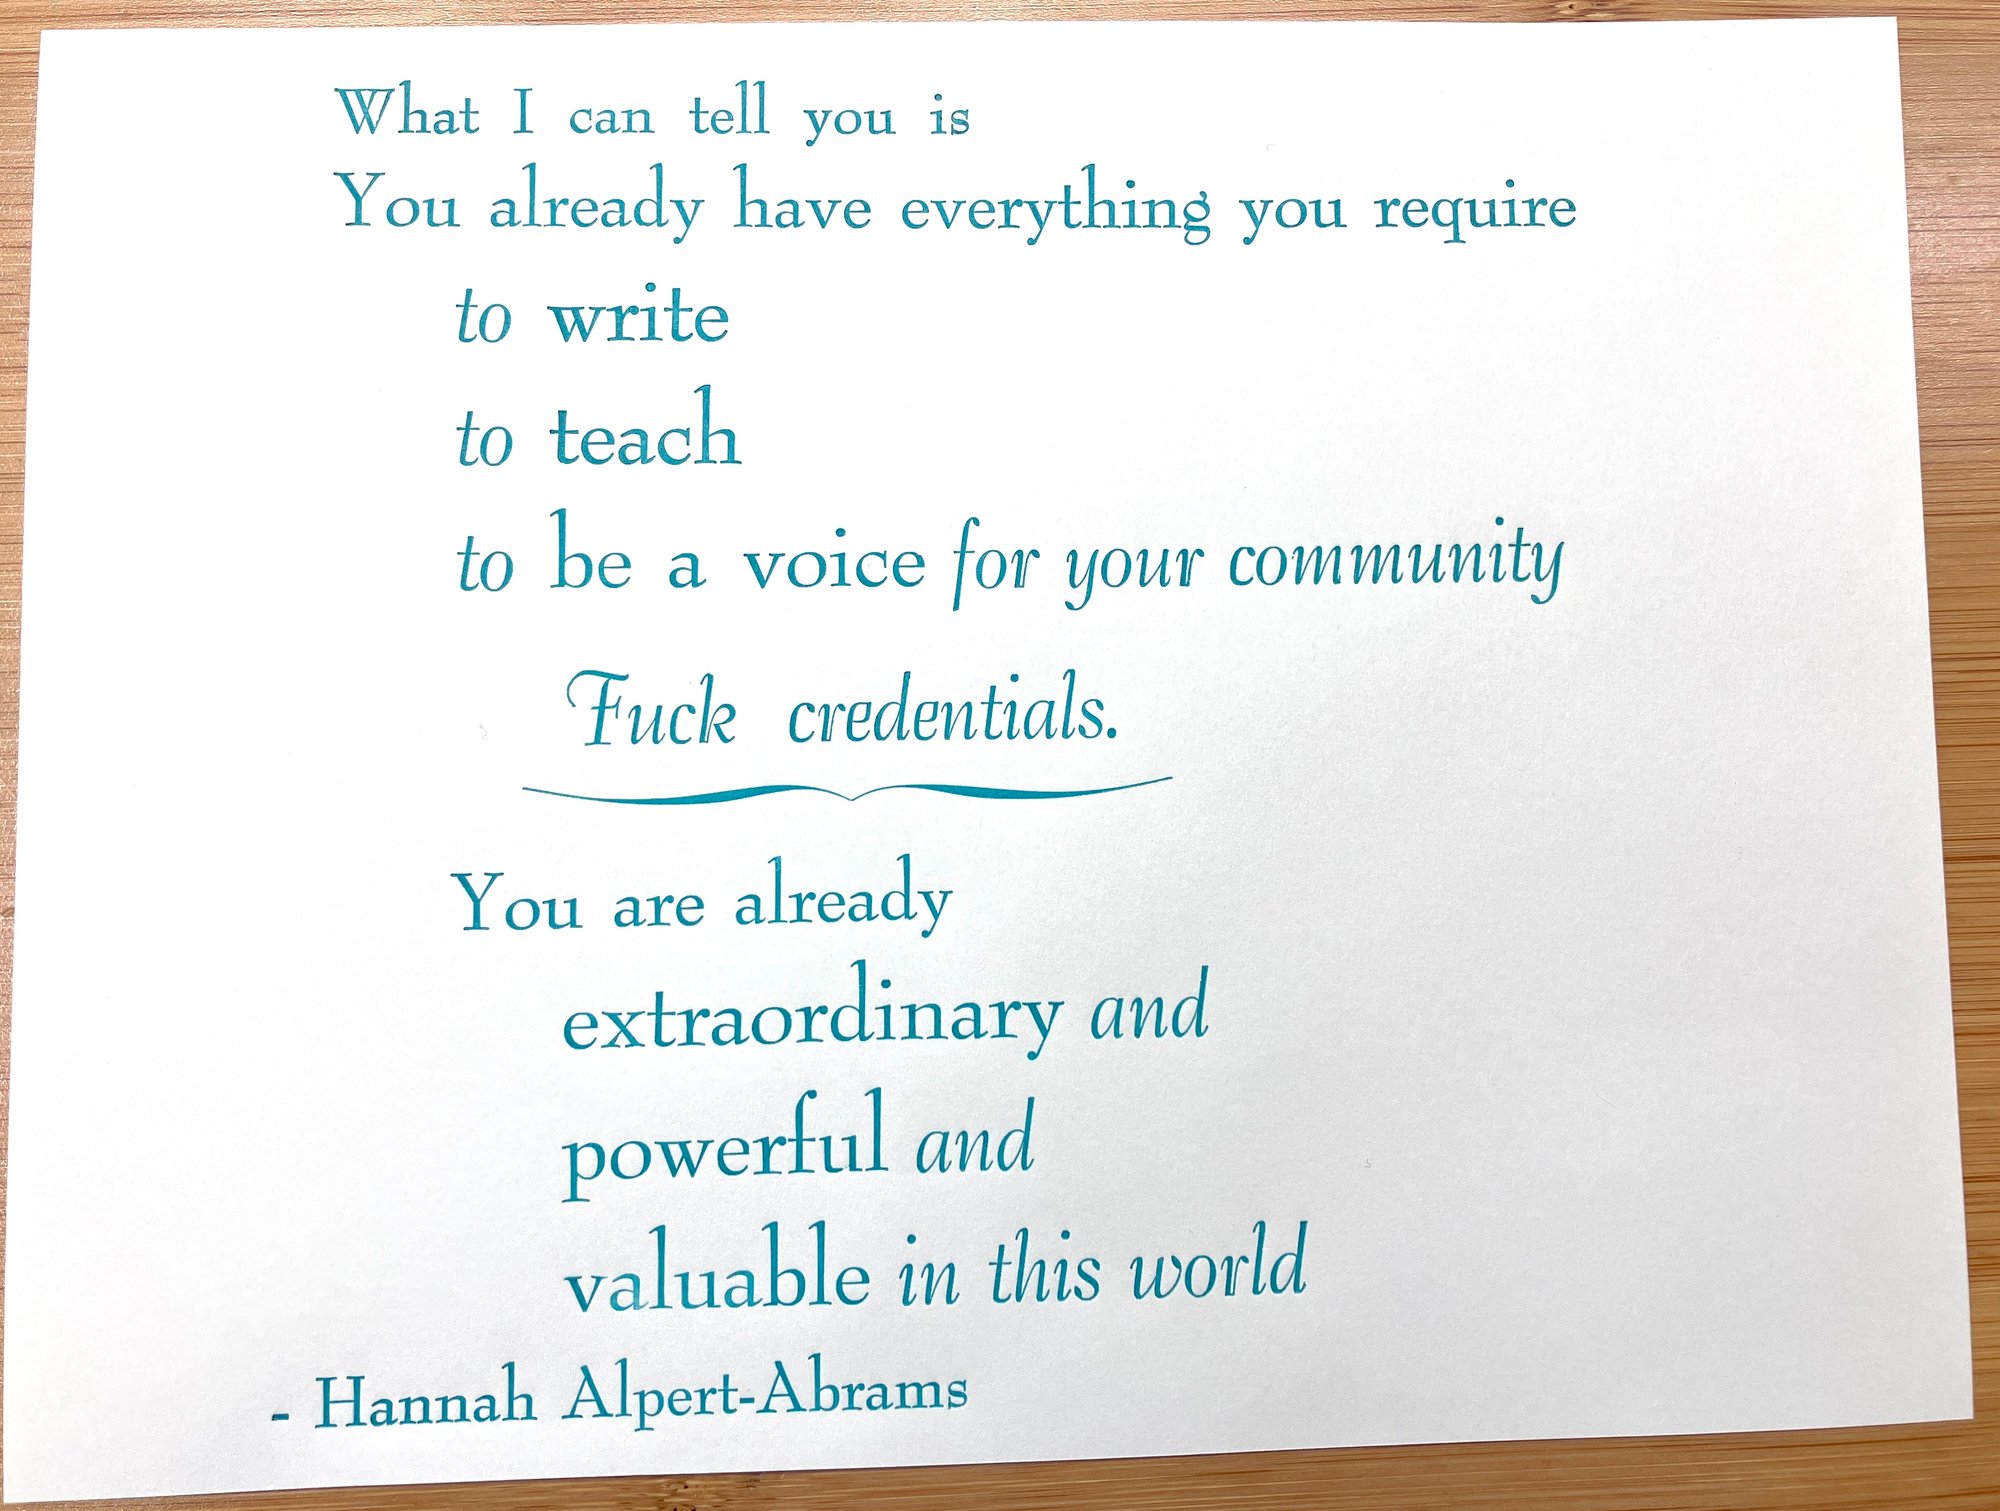 What I can tell you is
You already have everything you require
to write
to teach
to be a voice for your community
Fuck credentials.
You are already
extraordinary and
powerful and
valuable in this world
- Hannah Alpert-Abrams